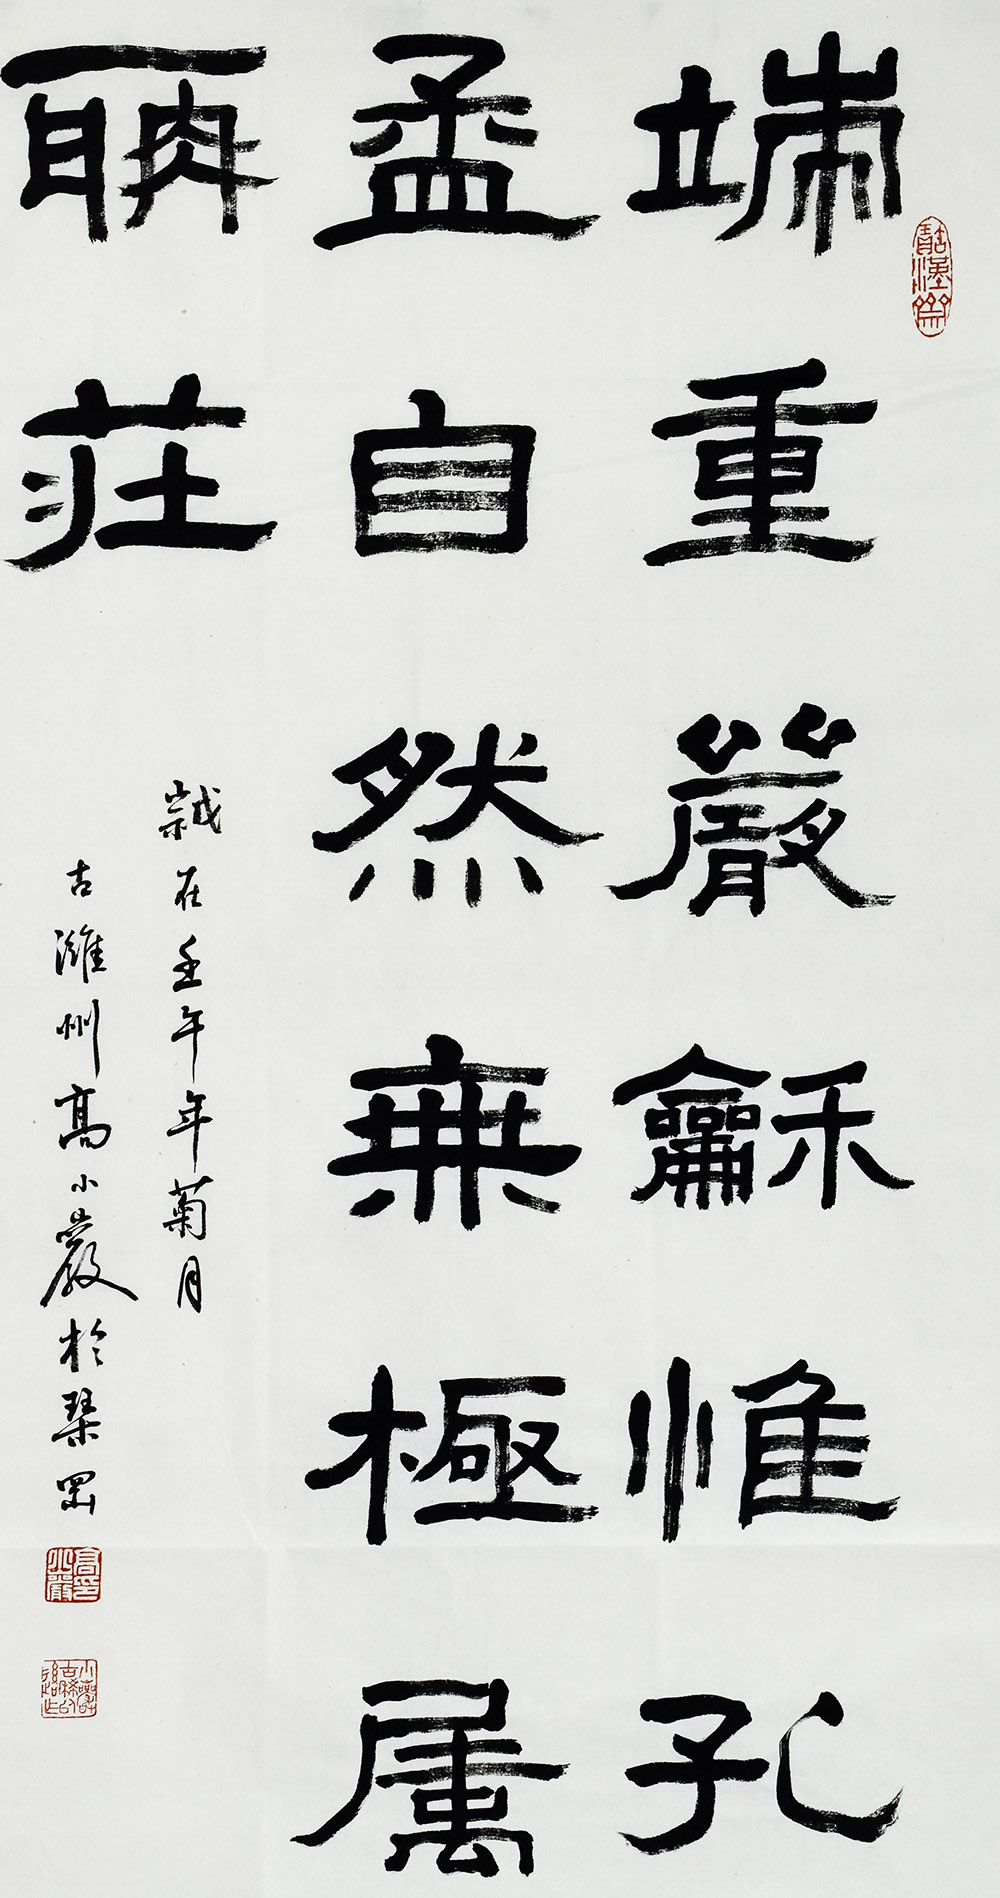 端重嚴龢惟孔
孟自然無極属
聃莊
歲在壬午年菊月
古濰州高小嚴於琹罡